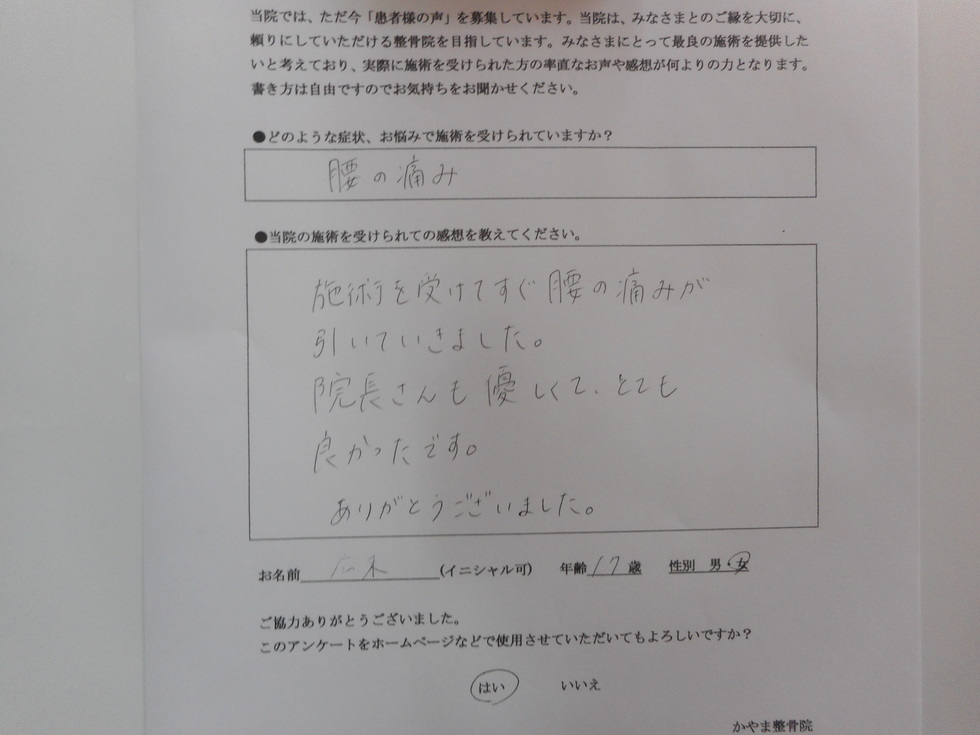 当院では、ただ今「患者様の声」を募集しています。当院は、みなさまとのご縁を大切に、
頼りにしていただける整骨院を目指しています。みなさまにとって最良の施術を提供した
いと考えており、実際に施術を受けられた方の率直なお声や感想が何よりの力となります。
書き方は自由ですのでお気持ちをお聞かせください。
●どのような症状、お悩みで施術を受けられていますか？
腰の痛み
●当院の施術を受けられての感想を教えてください。
施術を受けてすぐ腰の痛みが
引いていきました。
院長さんも優しくて、とても
良かったです。
ありがとうございました。
お名前 広木 (イニシャル可) 年齢 17 歳 性別 男・女
ご協力ありがとうございました。
このアンケートをホームページなどで使用させていただいてもよろしいですか？
はい いいえ
かやま整骨院